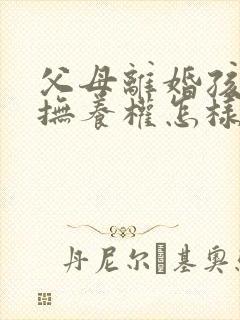 父母離婚孩
撫養權怎樣
丹尼尔·基奥